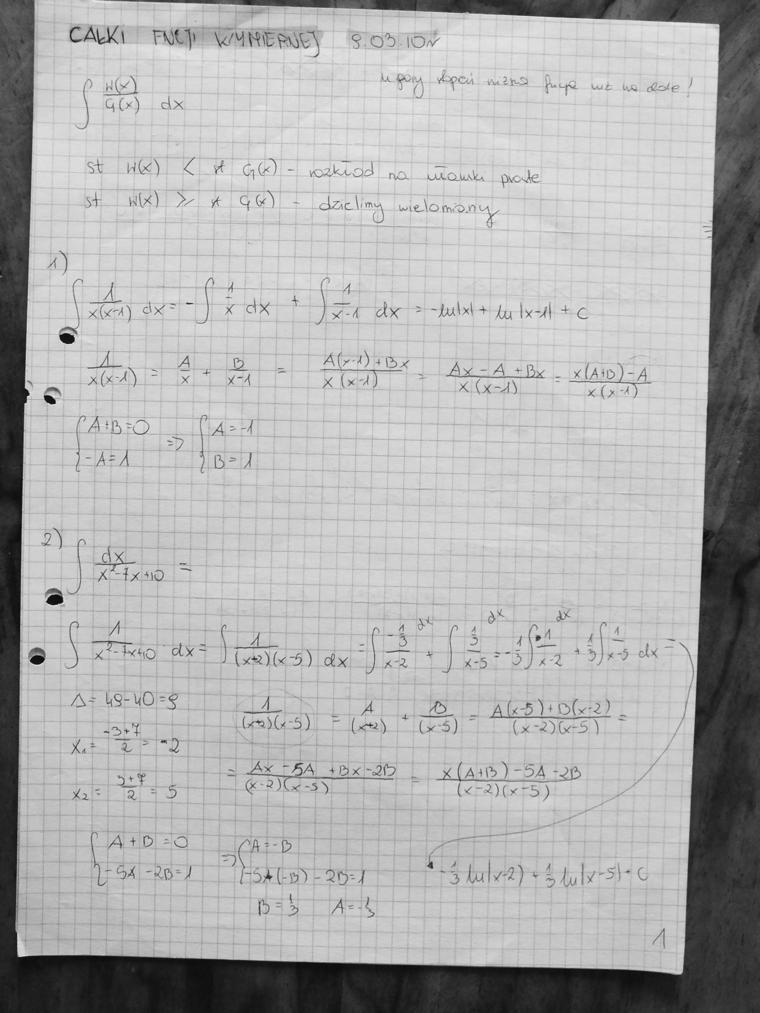 CAŁKI FNCJI WYMIERNEJ 9.03.10r
u góry stopień niższa funcja niż na dole!
∫ W(x)/G(x) dx
st W(x) < st G(x) - rozkład na ułamki proste
st W(x) ≥ st G(x) - dzielimy wielomiany
1)
∫ 1/x(x-1) dx = -∫ 1/x dx + ∫ 1/x-1 dx = -ln|x| + ln|x-1| + C
1/x(x-1) = A/x + B/x-1 = A(x-1)+Bx/x(x-1) = Ax-A+Bx/x(x-1) = x(A+B)-A/x(x-1)
{A+B=0 => {A=-1
{-A=1 {B=1
2) ∫ dx/x²-7x+10 =
∫ 1/x²-7x+10 dx = ∫ 1/(x-2)(x-5) dx = ∫ -1/3/x-2 dx + ∫ 1/3/x-5 dx = -1/3 ∫ 1/x-2 dx + 1/3 ∫ 1/x-5 dx =
Δ = 49-40=9 1/(x-2)(x-5) = A/(x-2) + B/(x-5) = A(x-5)+B(x-2)/(x-2)(x-5) =
x₁ = -3+7/2 = 2
= Ax-5A+Bx-2B/(x-2)(x-5) = x(A+B)-5A-2B/(x-2)(x-5)
x₂ = 3+7/2 = 5
{A+B=0 => {A=-B
{-5A-2B=1 {-5(-B)-2B=1 -1/3 ln|x-2| + 1/3 ln|x-5| + C
B=1/3 A=-1/3
1